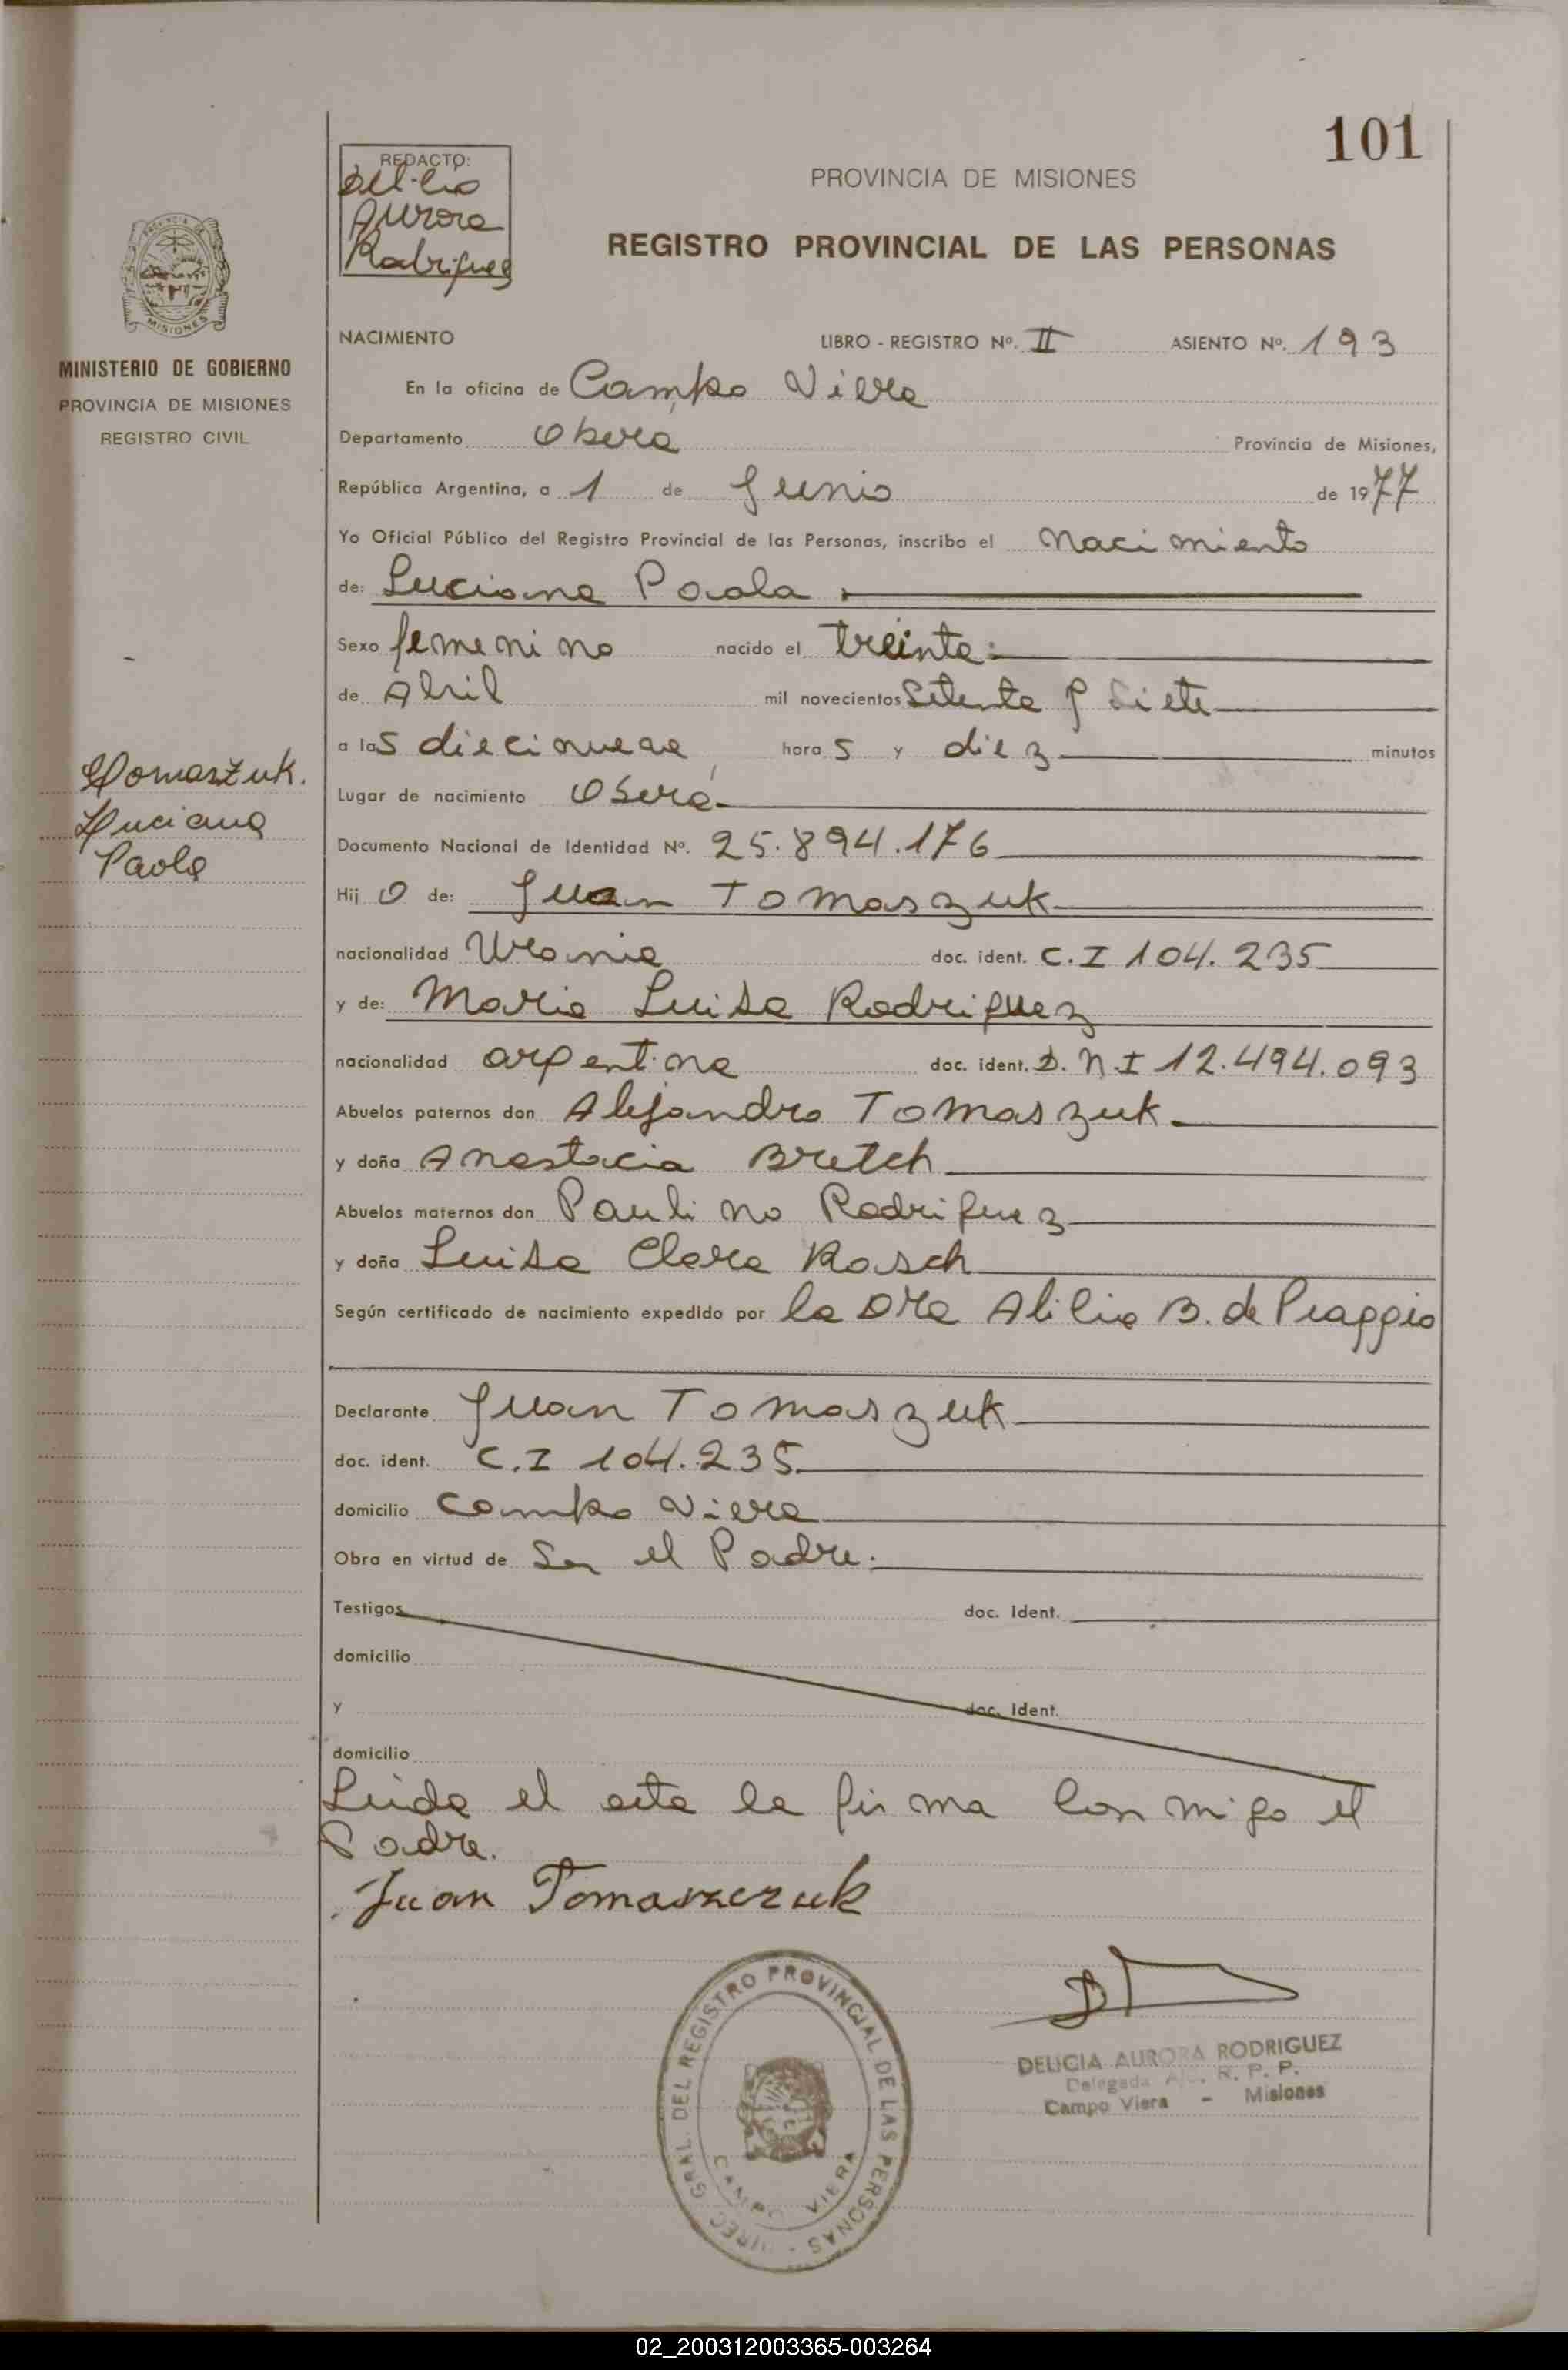 101
REDACTO:
Aurora
Rodriguez
PROVINCIA DE MISIONES
REGISTRO PROVINCIAL DE LAS PERSONAS
MINISTERIO DE GOBIERNO
PROVINCIA DE MISIONES
REGISTRO CIVIL
NACIMIENTO LIBRO - REGISTRO Nº. II ASIENTO Nº. 193
En la oficina de Campo Viera
Departamento Obera Provincia de Misiones,
República Argentina, a 1 de Junio de 1977
Yo Oficial Público del Registro Provincial de las Personas, inscribo el Nacimiento
de: Luciana Paola
Sexo femenino nacido el treinta
de Abril mil novecientos Setenta y Siete
a las diecinueve horas y diez minutos
Tomaszuk.
Luciana
Paola
Lugar de nacimiento Oberá
Documento Nacional de Identidad Nº. 25.894.176
Hij a de: Juan Tomaszuk
nacionalidad doc. ident. C.I 104.235
y de: Maria Luisa Rodriguez
nacionalidad argentina doc. ident. D.N.I 12.494.093
Abuelos paternos don Alejandro Tomaszuk
y doña Anastacia Bretch
Abuelos maternos don Paulino Rodriguez
y doña Luisa Clara Rasch
Según certificado de nacimiento expedido por la Dra B. de Piaggio
Declarante Juan Tomaszuk
doc. ident. C.I 104.235
domicilio Campo Viera
Obra en virtud de Ser el Padre.
Testigos doc. Ident.
domicilio
y doc. Ident.
domicilio
Leida el acta la firma Conmigo el
Padre.
Juan Tomaszczuk
DIREC. GRAL. DEL REGISTRO PROVINCIAL DE LAS PERSONAS -
CAMPO VIERA
DELICIA AURORA RODRIGUEZ
Delegada R. P. P.
Campo Viera - Misiones
02_200312003365-003264